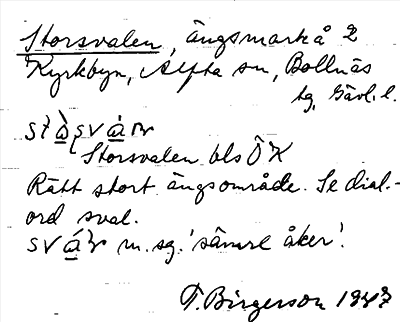 Storsvalen, ängsmark å 2
Kyrkbyn, Alfta sn, Bollnäs
tg, Gävl. l.
Storsvalen bls Ö K
Rätt stort ängsområde. Se dial.-
ord sval.
m. sg. 'sämre åker'.
T. Birgerson 1947